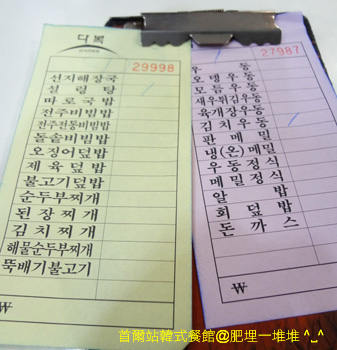 다복
29998
선지해장국
설렁탕
따로국밥
전주비빔밥
전주전통비빔밥
돌솥비빔밥
오징어덮밥
제육덮밥
불고기덮밥
순두부찌개
된장찌개
김치찌개
해물순두부찌개
뚝배기불고기
₩
27987
우동
오뎅우동
모듬우동
새우튀김우동
육개장우동
김치우동
판메밀
냉(온)메밀
우동정식
메밀정식
알밥
회덮밥
돈까스
₩
首爾站韓式餐館@肥理一堆堆 ^_^